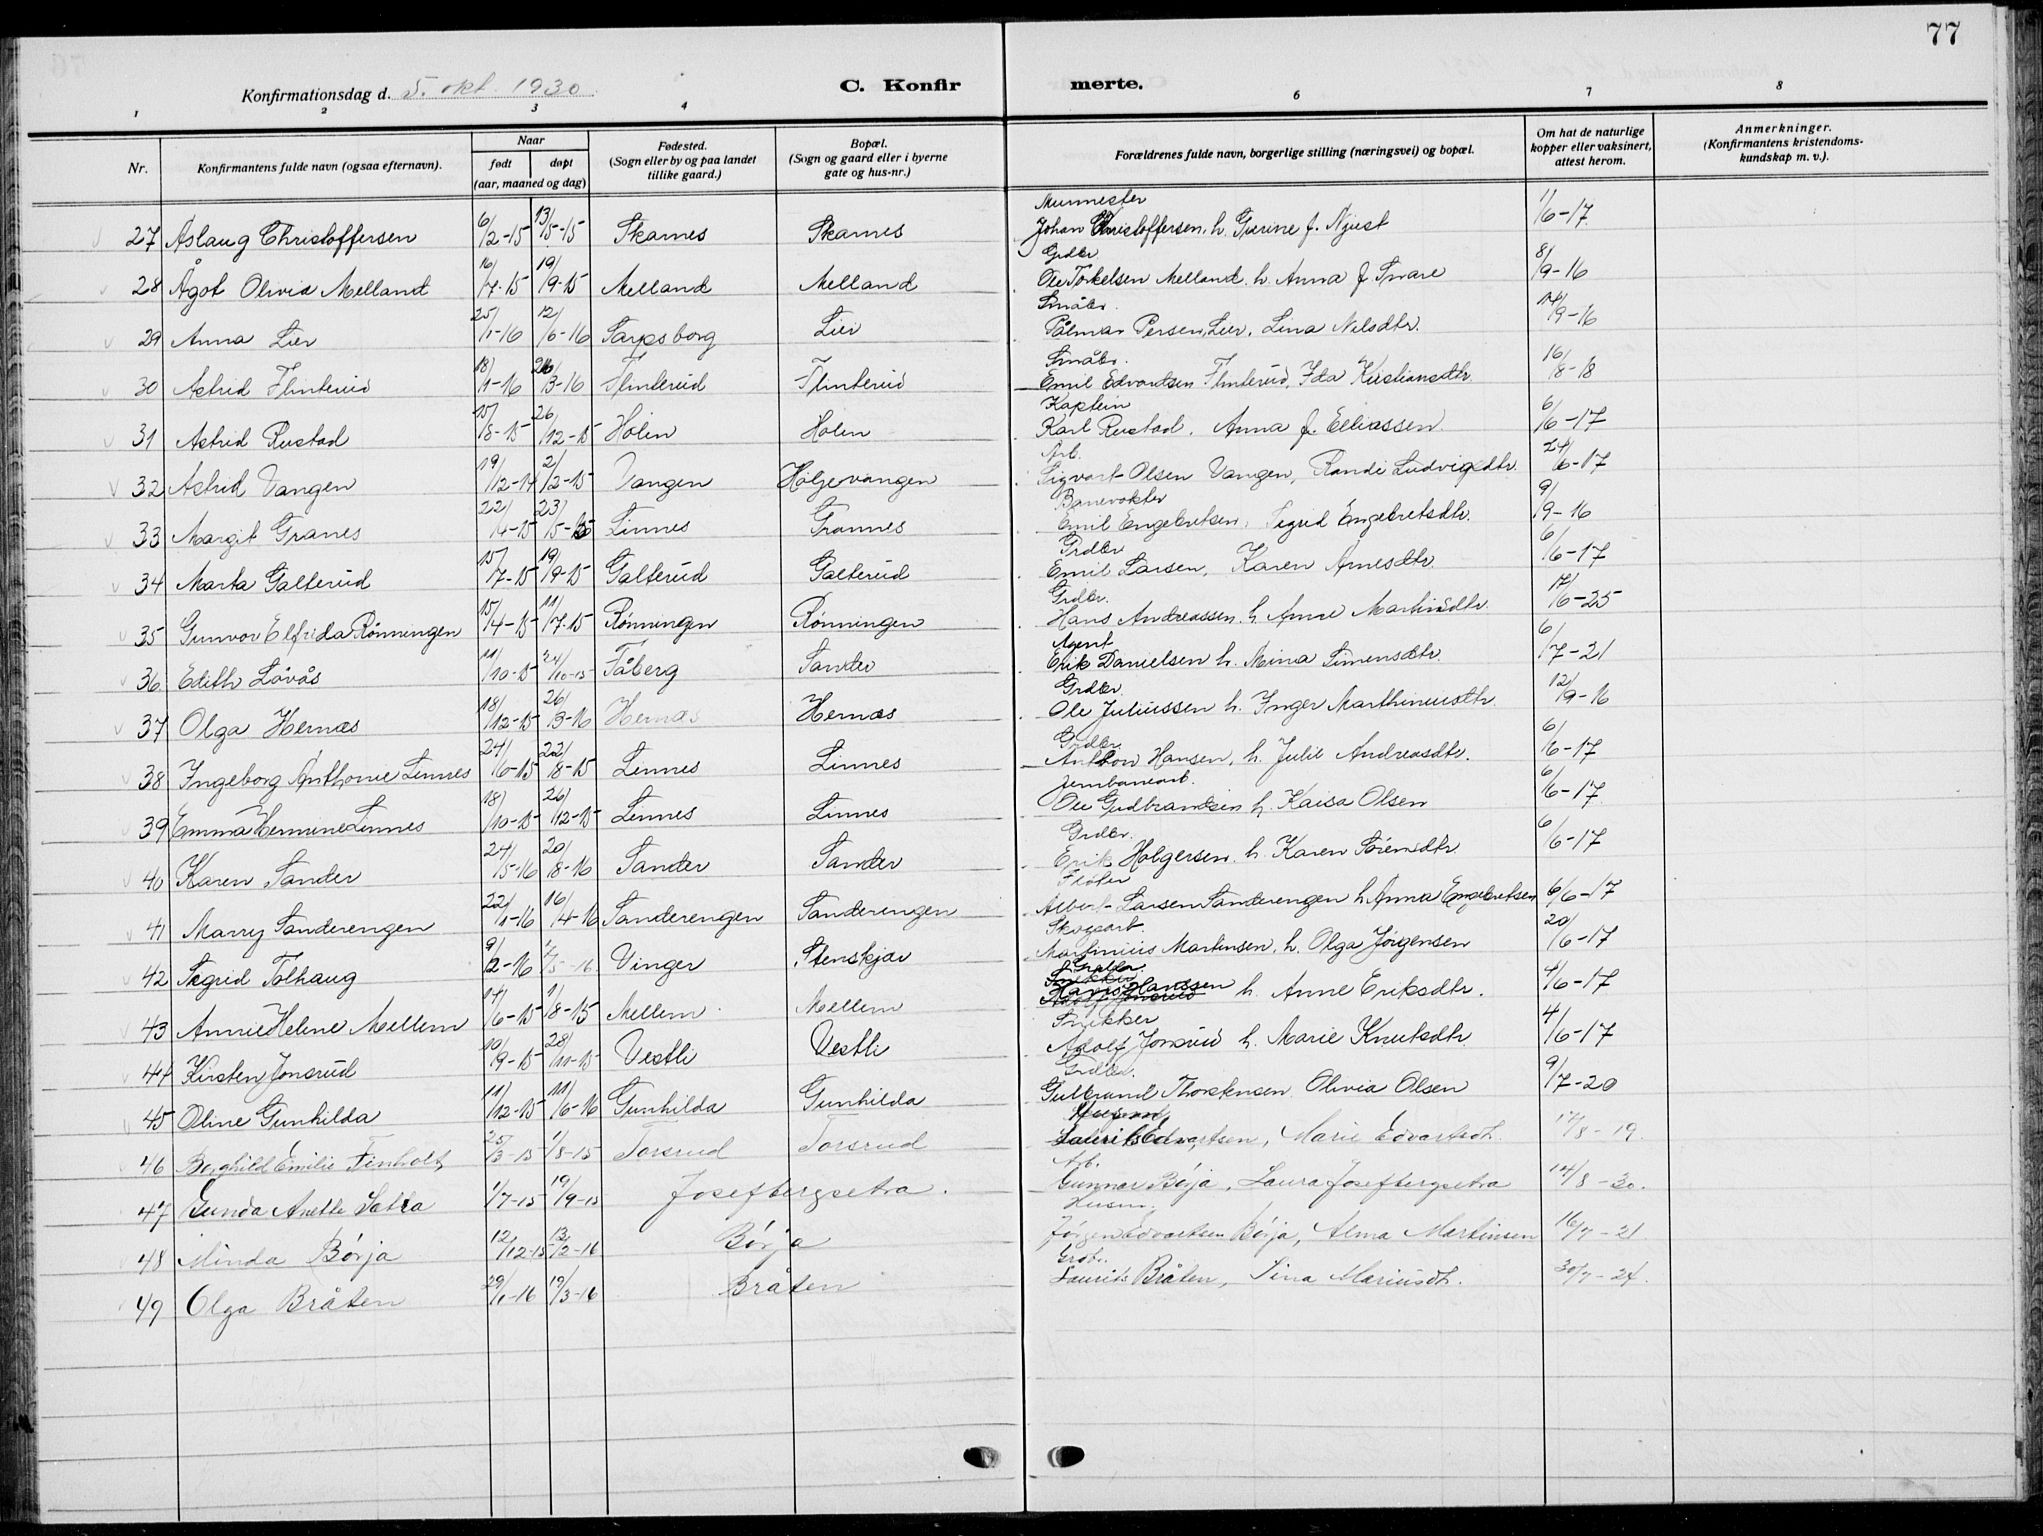 77
Konfirmationsdag d. 5. okt. 1930
C. Konfir merte.
1 2 3 4 6 7 8
Nr. Konfirmantens fulde navn (ogsaa efternavn). Naar født døpt (aar, maaned og dag) Fødested. (Sogn eller by og paa landet tillike gaard.) Bopæl. (Sogn og gaard eller i byerne gate og hus-nr.) Forældrenes fulde navn, borgerlige stilling (næringsvei) og bopæl. Om hat de naturlige kopper eller vaksinert, attest herom. Anmerkninger. (Konfirmantens kristendoms-kundskap m. v.).
Murmester
27 Aslaug Christoffersen 6/2-15 13/5-15 Skarnes Skarnes Johan Christoffersen, h. Gurine f. Njust 1/6-17
Grdbr
28 Ågot Olivia Melland 16/7-15 19/9-15 Melland Melland Ole Torkelsen Melland h. Anna f Snare 8/9-16
Småbr.
29 Anna Lier 25/1-16 12/6-16 Sarpsborg Lier Pålmar Persen Lier, Lina Nilsdtr. 14/9-16
Småbr.
30 Astrid Flinterud 18/1-16 26/3-16 Flinterud Flinterud Emil Edvardsen Flinterud, Ida Kristiansdtr 16/8-18
Kaptein
31 Astrid Rustad 15/8-15 26/12-15 Holen Holen Karl Rustad, Anna f. Elliassen 6/6-17
Arb.
32 Astrid Vangen 19/12-14 2/2-15 Vangen Holjevangen Sigvart Olsen Vangen, Randi Ludvigsdtr. 24/6-17
Banevokter
33 Margit Granes 22/4-15 23/5-15 Linnes Grannes Emil Engebretsen, Sigrid Engebretsdtr. 9/9-16
Grdbr
34 Marta Galterud 15/7-15 19/9-15 Galterud Galterud Emil Larsen, Karen Arnesdtr. 6/6-17
Grdbr.
35 Gunvor Elfrida Rönningen 15/4-15 11/7-15 Rönningen Rönningen Hans Andreassen h. Anne Martinsdtr. 17/6-25
Agent
36 Edith Lövås 11/10-15 24/10-15 Fåberg Sander Erik Danielsen h. Mina Simensdtr. 6/7-21
Grdbr.
37 Olga Hernæs 18/12-15 26/3-16 Hernæs Hernæs Ole Juliussen h. Inger Marthinusdtr. 12/9-16
Grdbr.
38 Ingeborg Anthonie Linnes 24/6-15 22/8-15 Linnes Linnes Anthon Hansen, h. Julie Andreasdtr. 6/6-17
Jernbanearb.
39 Emma Hermine Linnes 18/10-15 26/12-15 Linnes Linnes Ole Gudbrandsen h. Kaisa Olsen 6/6-17
Grdbr.
40 Karen Sander 24/5-16 20/8-16 Sander Sander Erik Holgersen h. Karen Sörensdtr. 6/6-17
Flöter
41 Marry Sanderengen 22/1-16 16/4-16 Sanderengen Sanderengen Albert Larsen Sanderengen h Anna Engebretsen 6/6-17
Skogsarb.
42 Sigrid Tolhaug 9/2-16 7/5-16 Vinger Stenskjær Martinius Martinsen, h. Olga Jörgensen 20/6-17
Grdbr.
43 Annie Helene Mellem 14/6-15 1/8-15 Mellem Mellem Hans Hanssen h. Anne Eriksdtr. 4/6-17
Snikker
44 Kirsten Jonsrud 10/9-15 28/11-15 Vestli Vestli Adolf Jonsrud h. Marie Knutsdtr. 4/6-17
Grdbr.
45 Oline Gunhilda 11/12-15 11/6-16 Gunhilda Gunhilda Gulbrand Thorstensen Olivia Olsen 9/7-20
46 Borghild Emilie Finholt 25/3-15 1/8-15 Torsrud Torsrud Laurits Edvartsen, Marie Edvartsdtr. 17/8-19.
Arb.
47 Gunda Anette Sætra 1/7-15 19/9-15 Josefbergsetra. Gunnar Börja, Laura Josefbergsetra 14/8-30.
Husm.
48 Minda Börja 12/12-15 13/2-16 Börja Jörgen Edvartsen Börja, Alma Martinsen 16/7-21
Grdbr.
49 Olga Bråten 29/1-16 19/3-16 Bråten Laurits Bråten, Lina Mariusdtr. 30/7-24.